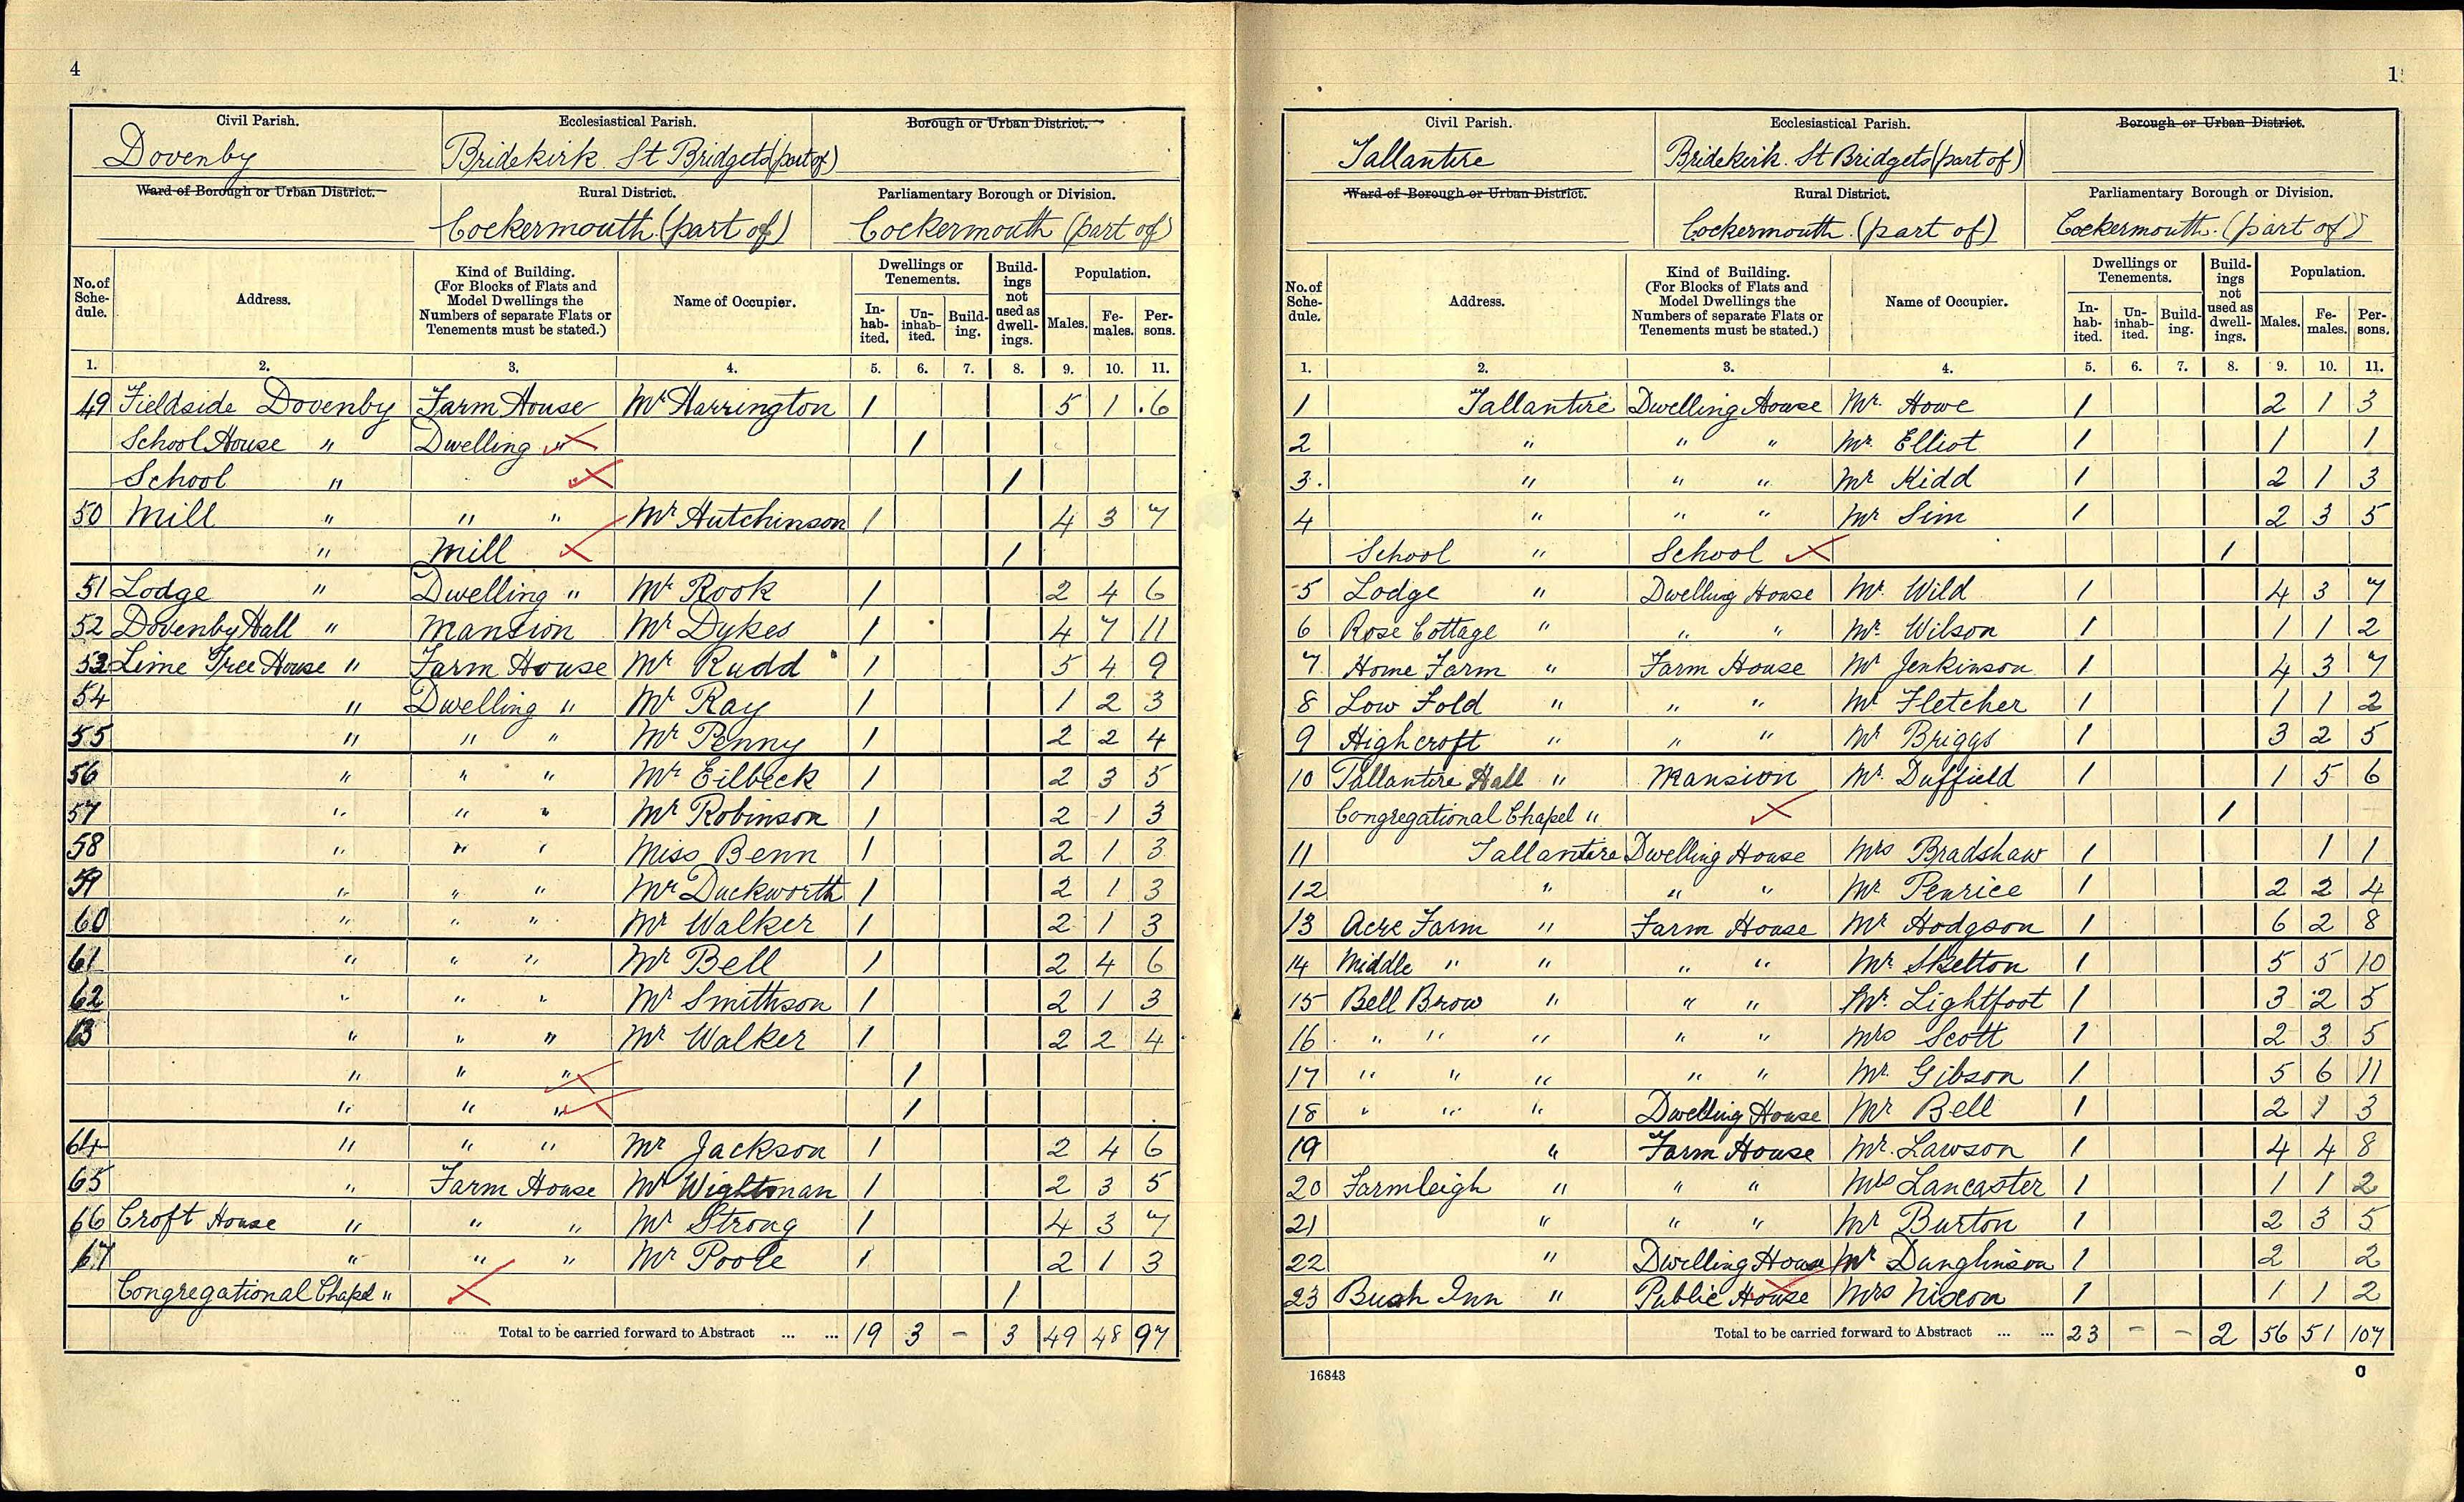 4
Civil Parish. Ecclesiastical Parish. Borough or Urban District.
Dovenby Bridekirk St Bridgets (part of)
Ward of Borough or Urban District. Rural District. Parliamentary Borough or Division.
Cockermouth (part of) Cockermouth (part of)
No. of Schedule. Address. Kind of Building. (For Blocks of Flats and Model Dwellings the Numbers of separate Flats or Tenements must be stated.) Name of Occupier. Dwellings or Tenements. Inhabited. Uninhabited. Building. Buildings not used as dwellings. Population. Males. Females. Persons.
1. 2. 3. 4. 5. 6. 7. 8. 9. 10. 11.
49 Fieldside Dovenby Farm House Mr Harrington 1 5 1 6
School House " Dwelling " 1
School " 1
50 Mill " " " Mr Hutchinson 1 4 3 7
" Mill 1
51 Lodge " Dwelling " Mr Rook 1 2 4 6
52 Dovenby Hall " Mansion Mr Dykes 1 4 7 11
53 Lime Tree House " Farm House Mr Rudd 1 5 4 9
54 " Dwelling " Mr Ray 1 1 2 3
55 " " " Mr Penny 1 2 2 4
56 " " " Mr Eilbeck 1 2 3 5
57 " " " Mr Robinson 1 2 1 3
58 " " " Miss Benn 1 2 1 3
59 " " " Mr Duckworth 1 2 1 3
60 " " " Mr Walker 1 2 1 3
61 " " " Mr Bell 1 2 4 6
62 " " " Mr Smithson 1 2 1 3
63 " " " Mr Walker 1 2 2 4
" " " 1
" " " 1
64 " " " Mr Jackson 1 2 4 6
65 " Farm House Mr Wightman 1 2 3 5
66 Croft House " " " Mr Strong 1 4 3 7
67 " " " Mr Poole 1 2 1 3
Congregational Chapel " 1
Total to be carried forward to Abstract ... ... 19 3 - 3 49 48 97
1
Civil Parish. Ecclesiastical Parish. Borough or Urban District.
Tallantire Bridekirk. St Bridgets (part of)
Ward of Borough or Urban District. Rural District. Parliamentary Borough or Division.
Cockermouth (part of) Cockermouth. (part of)
No. of Schedule. Address. Kind of Building. (For Blocks of Flats and Model Dwellings the Numbers of separate Flats or Tenements must be stated.) Name of Occupier. Dwellings or Tenements. Inhabited. Uninhabited. Building. Buildings not used as dwellings. Population. Males. Females. Persons.
1. 2. 3. 4. 5. 6. 7. 8. 9. 10. 11.
1 Tallantire Dwelling House Mr. Howe 1 2 1 3
2 " " " Mr. Elliot 1 1 1
3. " " " Mr Kidd 1 2 1 3
4 " " " Mr Sim 1 2 3 5
School " School 1
5 Lodge " Dwelling House Mr. Wild 1 4 3 7
6 Rose Cottage " " " Mr. Wilson 1 1 1 2
7 Home Farm " Farm House Mr Jenkinson 1 4 3 7
8 Low Fold " " " Mr Fletcher 1 1 1 2
9 Highcroft " " " Mr Briggs 1 3 2 5
10 Tallantire Hall " Mansion Mr. Duffield 1 1 5 6
Congregational Chapel " 1
11 Tallantire Dwelling House Mrs Bradshaw 1 1 1
12 " " " Mr Penrice 1 2 2 4
13 Acre Farm " Farm House Mr Hodgson 1 6 2 8
14 Middle " " " " Mr Skelton 1 5 5 10
15 Bell Brow " " " Mr. Lightfoot 1 3 2 5
16 " " " " " Mrs Scott 1 2 3 5
17 " " " " " Mr. Gibson 1 5 6 11
18 " " " Dwelling House Mr Bell 1 2 1 3
19 " Farm House Mr. Lawson 1 4 4 8
20 Farmleigh " " " Mrs Lancaster 1 1 1 2
21 " " " Mr Burton 1 2 3 5
22 " Dwelling House Mr 1 2 2
23 Bush Inn " Public House Mrs Nixon 1 1 1 2
Total to be carried forward to Abstract ... ... 23 - - 2 56 51 107
16843 O